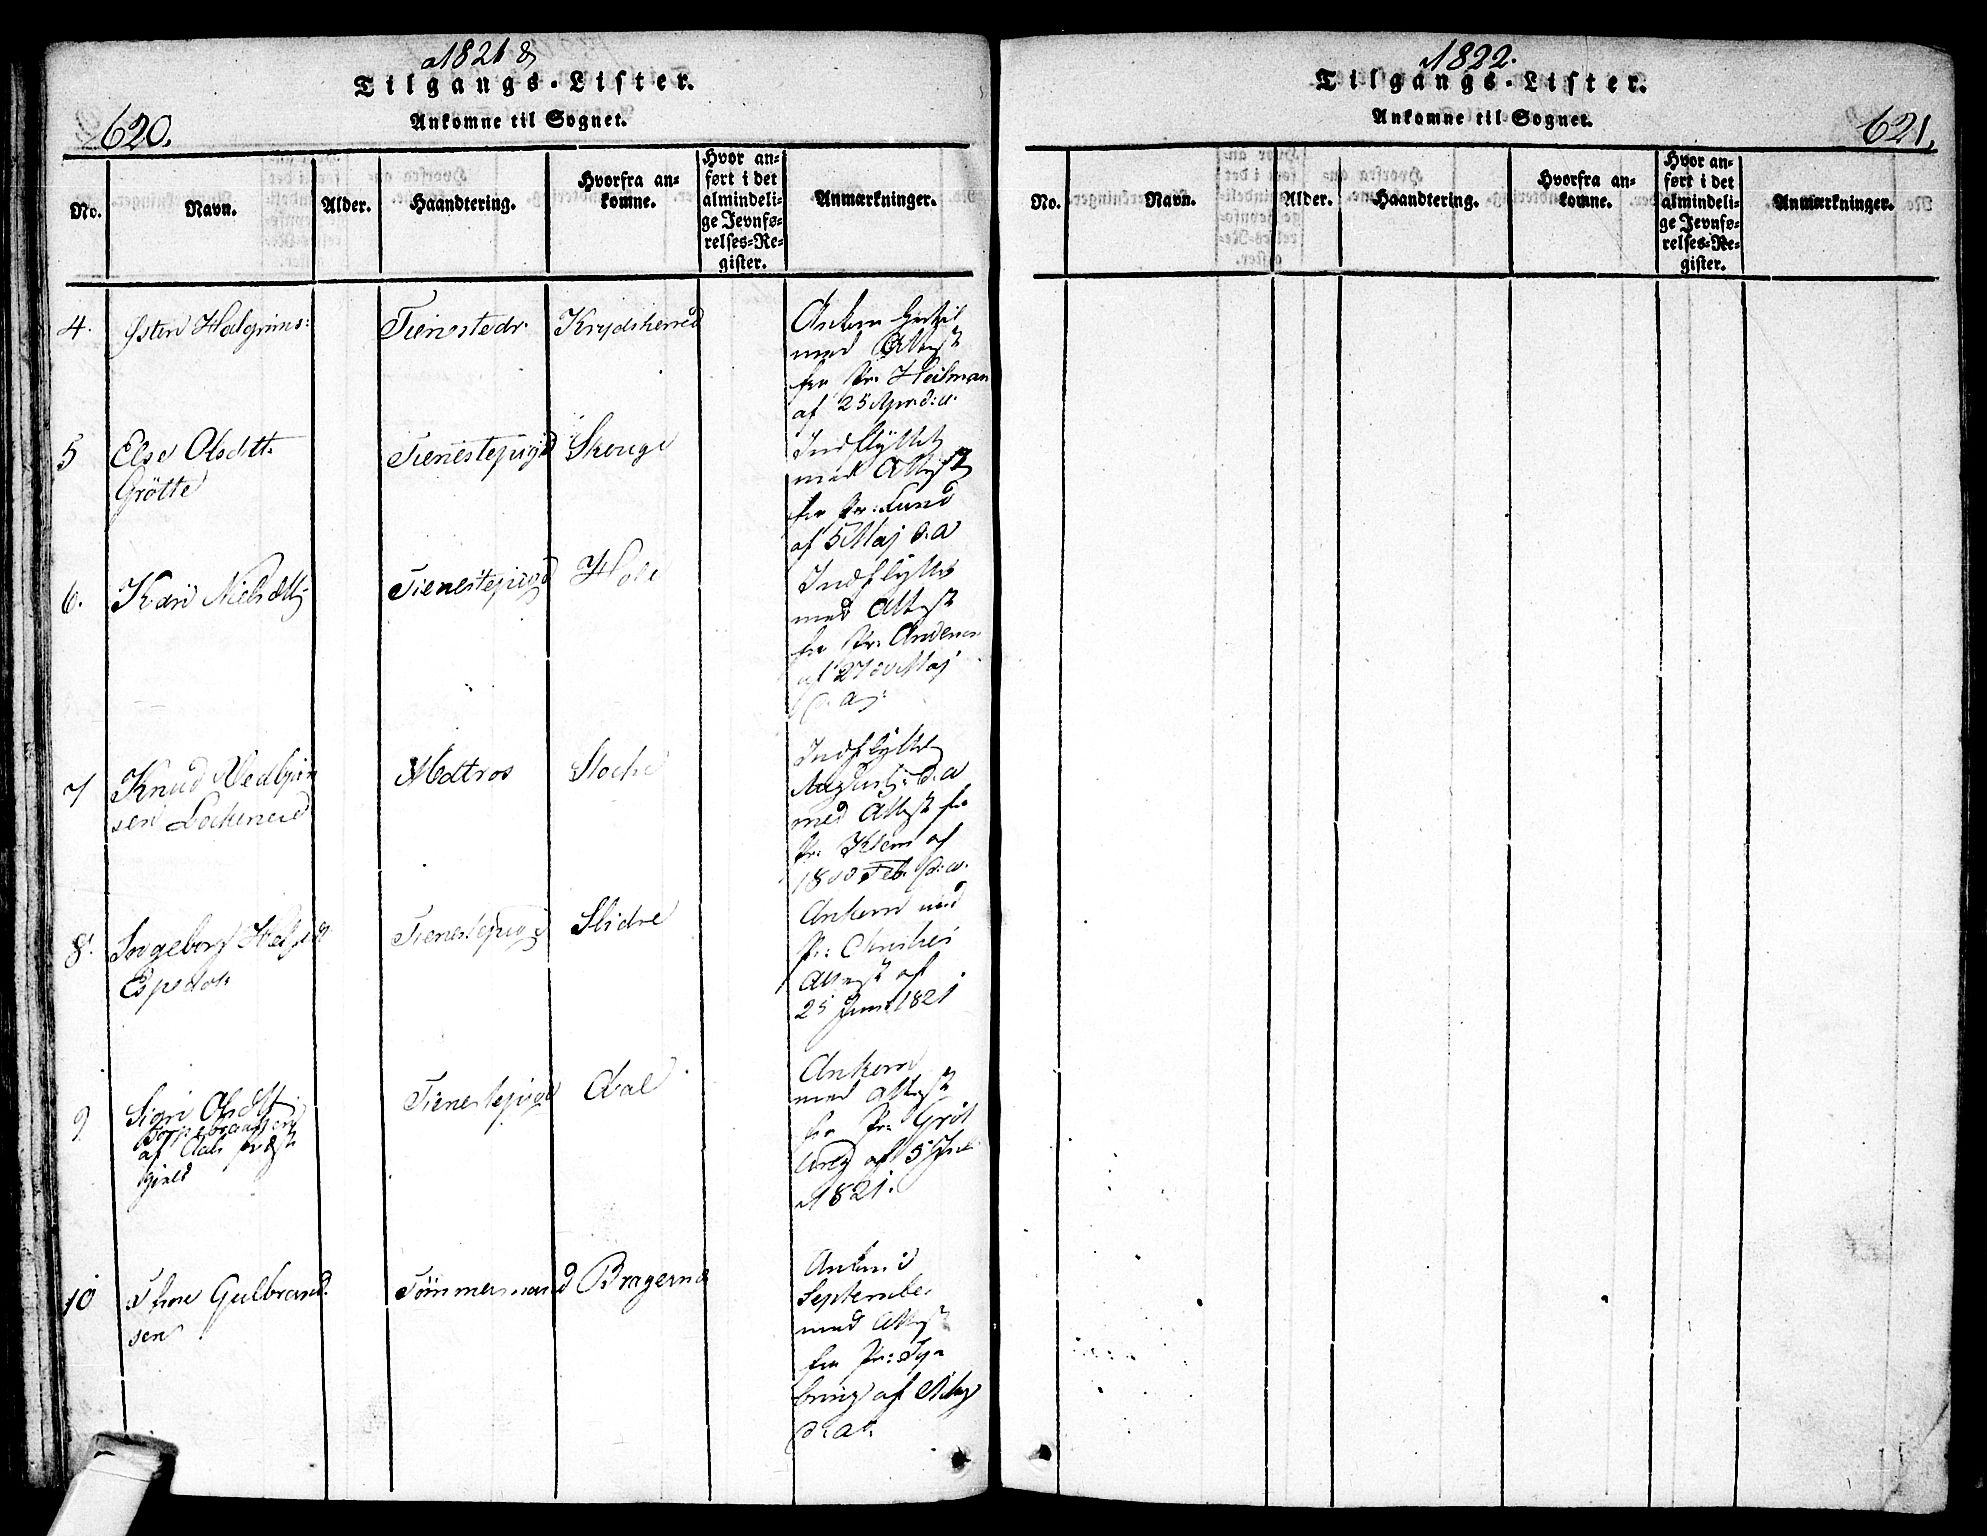 1821 &
Tilgangs-Lister.
620.
Ankomne til Sognet.
No.
Navn.
Alder.
Haandtering.
Hvorfra an-
komne.
Hvor an-
ført i det
almindeli-
ge Jevnfø-
relses-Re-
gister.
Anmærkninger.
4.
Halgrims:
Krydsherred
Ankom hertil
med Attest
fra Pr: Heilman
af 25 April d: a.
5
Else Olsdtt.
Grötte
Tienestepige
Skouge
Indflyttet
med Attest
fra Pr: Lund
af 5 Maj d. a
6.
Kari Nielsdttr
Tienestepige
Hole
Indflyttet
med Attest
fra Pr:
af 27de Maj
d. a:
7
Knud
sen
Matros
Indflyttet
August: d. a
med Attest fra
Pr: Klem af
Feb. d: a.
8.
Ingeborg
Tienestepige
Slidre
Ankom med
Pr:
Attest af
25 Juni 1821
9
Sigri Olsdttr
af Aals Præste
gield
Tienestepige
Aal
Ankom
med Attest
fra Pr: Gröt
af 5
1821.
10
Thore Gulbrand
sen
Tömmermand
Bragernes
Ankom i
September
med Attest
fra Pr: Ty
bring af Maj
d. a.
1822.
Tilgangs-Lister.
Ankomne til Sognet.
621.
No.
Navn.
Alder.
Haandtering.
Hvorfra an-
komne.
Hvor an-
ført i det
almindeli-
ge Jevnfø-
relses-Re-
gister.
Anmærkninger.